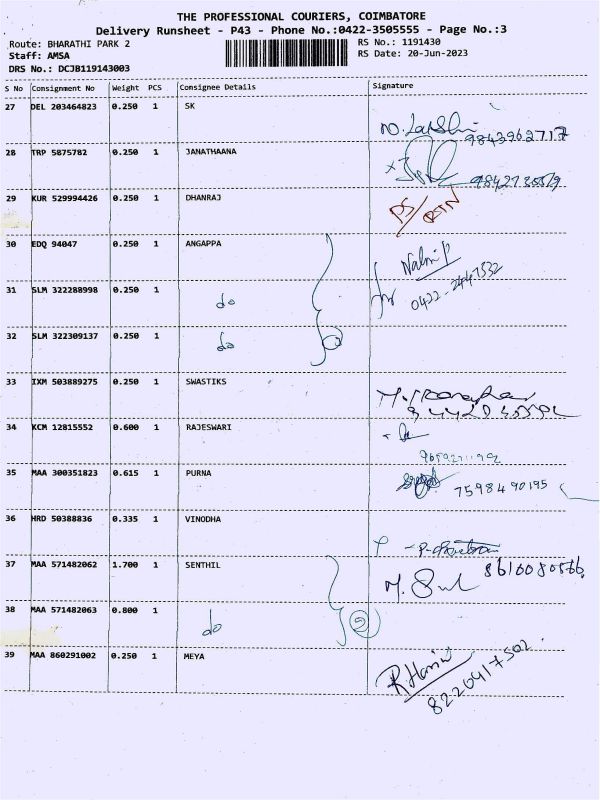 THE PROFESSIONAL COURIERS, COIMBATORE
Delivery Runsheet - P43 - Phone No.:0422-3505555 - Page No.:3
Route: BHARATHI PARK 2 RS No.: 1191430
Staff: AMSA RS Date: 20-Jun-2023
DRS No.: DCJB119143003
S No Consignment No Weight PCS Consignee Details Signature
27 DEL 203464823 0.250 1 SK
9843962717
28 TRP 5875782 0.250 1 JANATHAANA
29 KUR 529994426 0.250 1 DHANRAJ
30 EDQ 94047 0.250 1 ANGAPPA
Nalini P
0422-2447532
31 SLM 322288998 0.250 1 do
32 SLM 322309137 0.250 1 do
33 IXM 503889275 0.250 1 SWASTIKS
34 KCM 12815552 0.600 1 RAJESWARI
35 MAA 300351823 0.615 1 PURNA
7598490195
36 HRD 50388836 0.335 1 VINODHA
37 MAA 571482062 1.700 1 SENTHIL
8610080566
38 MAA 571482063 0.800 1 do
39 MAA 860291002 0.250 1 MEYA
8220417502